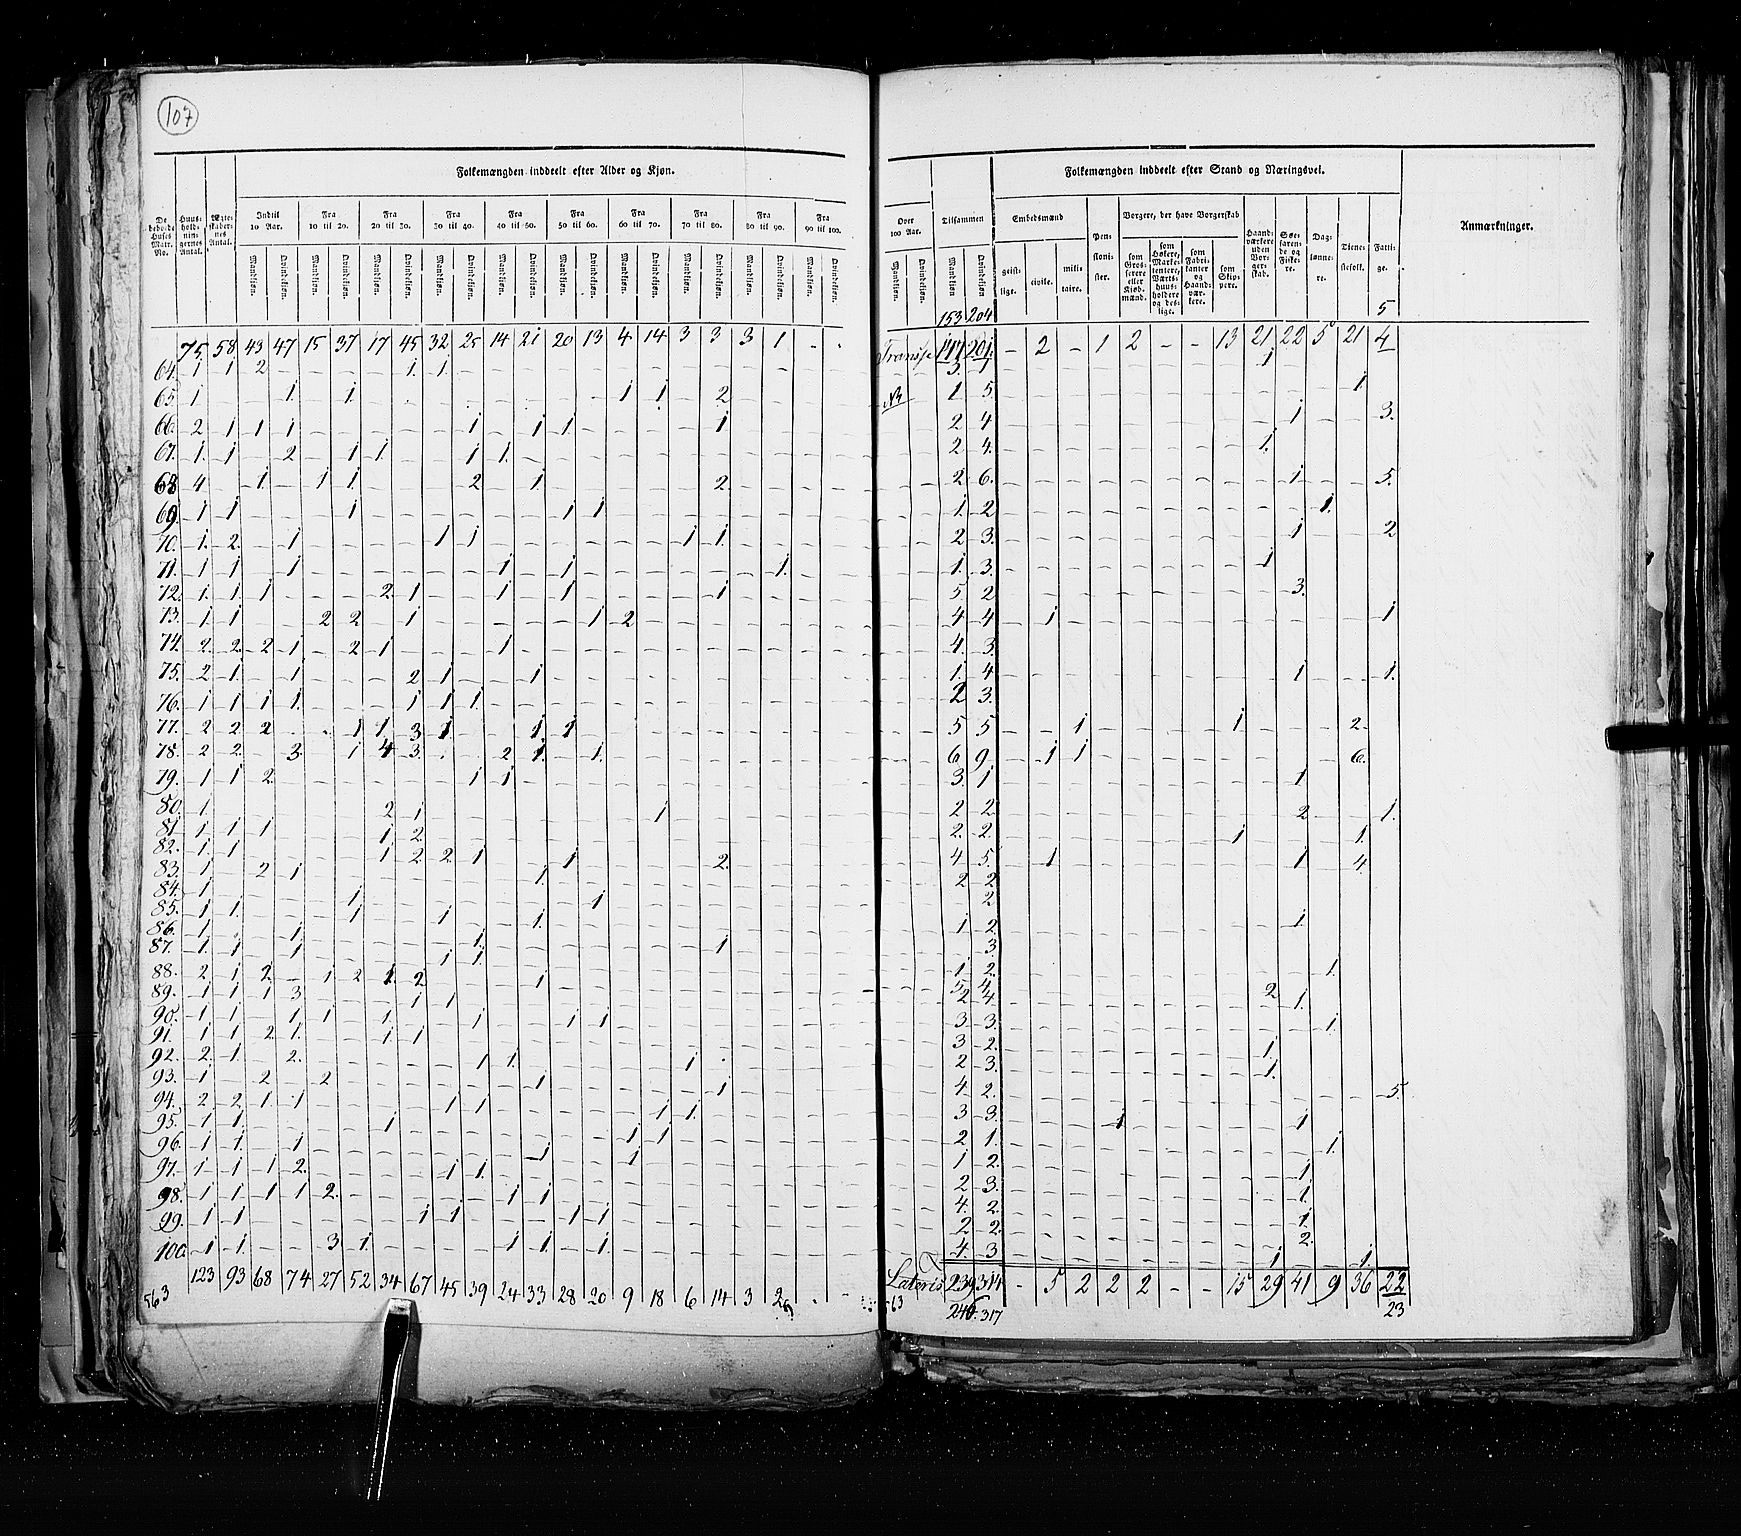 107
Folkemængden inddeelt efter Alder og Kjøn.
De beboede Huses Matr. No.
Huusholdningernes Antal.
Ægteskabernes Antal.
Indtil 10 Aar.
Fra 10 til 20.
Fra 20 til 30.
Fra 30 til 40.
Fra 40 til 50.
Fra 50 til 60.
Fra 60 til 70.
Fra 70 til 80.
Fra 80 til 90.
Fra 90 til 100.
Mandkjøn. Qvindekjøn. Mandkjøn. Qvindekjøn. Mandkjøn. Qvindekjøn. Mandkjøn. Qvindekjøn. Mandkjøn. Qvindekjøn. Mandkjøn. Qvindekjøn. Mandkjøn. Qvindekjøn. Mandkjøn. Qvindekjøn. Mandkjøn. Qvindekjøn. Mandkjøn. Qvindekjøn.
75. 58 43 47 15 37 17 45 32 25 14 21 20 13 4 14 3 3 3 1 - -
64. 1 1 2 - - - - 1 1
65 1 - - 1 - 1 - - - - - - - - 1 1 - 2
66 2 1 1 1 - - - - - 1 - 1 1 - - - - 1
67. 1 1 - 2 - 1 1 - - 1 1
68 4 - 1 - 1 1 - - - 2 - 1 - - - - - 2
69. 1 1 - - - 1 - - - - - - 1 1
70. 1 2 - 1 - - - - 1 1 - - - - - - 1 1
71. 1 1 - 1 - - - - - - 1 - 1 - - - - - - 1
72. 1 1 1 - - - 2 1 - - 1 - 1 - - - - 1
73. 1 1 - - 2 2 - 1 - - - - - 1 2
74. 2 2 2 1 - 2 1 - - - 1
75. 2 1 - 1 - - - 2 1 - - 1
76. 1 1 1 1 - - - 1 1 1
77. 2 2 2 - - 1 1 3 1 - - 1 1
78. 2 2 - 3 - 1 4 3 - - 2 1 - 1
79. 1 1 2 - - - - - - 1 1
80. 1 - - - - - 2 1 - - - - - - - 1
81 1 1 1 - - - 1 2
82. 1 1 - - - - 1 2 2 1 - - 1 - - - - 2
83. 1 - 2 1 - - - - - - - 1
84. 1 - - - - 1 - - - - - - - 1
85. 1 1 - - - 1 - - 1 - - 1
86. 1 - - 1 - - - - - 1 - - - - - - - 1
87. 1 1 - 1 - - - - 1 1
88. 2 1 2 - 1 2 1 2 - - - 1
89. 1 1 1 3 - - - 1 1
90. 1 1 - 1 1 - 1 - - 1 - - 1 1
91. 1 1 2 1 - - 1 1
92. 2 1 - 2 - - - - - 1 1 - - - - - 1
93. 1 - 2 - 2 - - - - - - 1 - - - - - 1
94. 2 2 1 1 - - - - 1 1 - - - - - 1 1
95. 1 1 - - - - 1 - - - - - - - 1 1
96. 1 1 - 1 - - - - - - - 1 - - 1
97. 1 1 1 2 - - - - 1 1
98. 1 1 1 1 2 - - - - - 1 1
99. 1 1 - - - - - 1 1 - - - 1 1
100. 1 1 - - 3 1 - - - - 1 1 - 1
123 93 68 74 27 52 34 67 45 39 24 33 28 20 9 18 6 14 3 2 - -
563
Over 100 Aar.
Mandkjøn. Qvindekjøn.
Tilsammen
Mandkjøn Qvindekjøn
Folkemængden inddeelt efter Stand og Næringsvei.
Embedsmænd
geistlige. civile. militaire.
Pensionister.
Borgere, der have Borgerskab
som Grosserere eller Kjøbmænd.
som Høkere, Marketentere, Værtshuusholdere og deslige.
som Fabrikanter og Haandværkere.
som Skippere.
Haandværkere uden Borgerskab.
Søefarende og Fiskere.
Daglønnere.
Tienestefolk.
Fattige.
Anmærkninger.
153 204 5
Transp. 147 201. - 2 - 1 2 - - 13 21 22 5 21 4
3. 1 1
1 5 1.
2 4 1 3.
2 4. 1.
2 6. 1 5.
1 2 1.
2 3. 1 2
1. 3. 1
5 2 3.
4 4 1 1
4. 3.
1. 4 1 1.
2 3.
5 5 1 1 2
6 9 1 1 6.
3. 1 1
2 2 2 1.
2. 2. 1 1.
4 5. 1 1 4.
2 2
2
1 2. 1
3
1 2. 1.
5. 4 2
2 4 1.
3 3. 1.
3 2. 1.
2 3. 1.
4. 2. 5.
3 3. 1 1
2 1. 1.
1 2. 1
2 3. 1.
4. 2. 1.
2 2. 2.
4. 3 1 1
Lateris 239 314 - 5 2 2 2 - - 15 29 41 9 36 22
563 246. 317 23